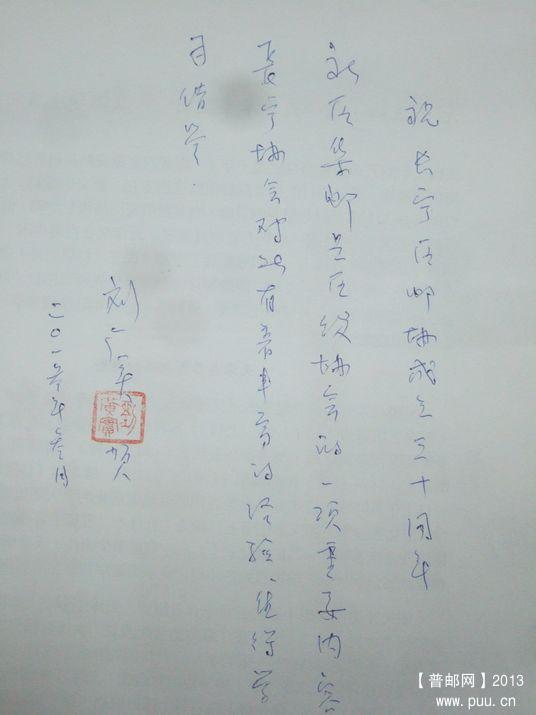 祝长宁区邮协成立三十周年
社区集邮是区级协会的一项重要内容
長宁协会对此有着丰富的经验,值得学
习借鉴.
刘广实 贺
二〇一叁年叁月
【普邮网】2013
www.puu.cn